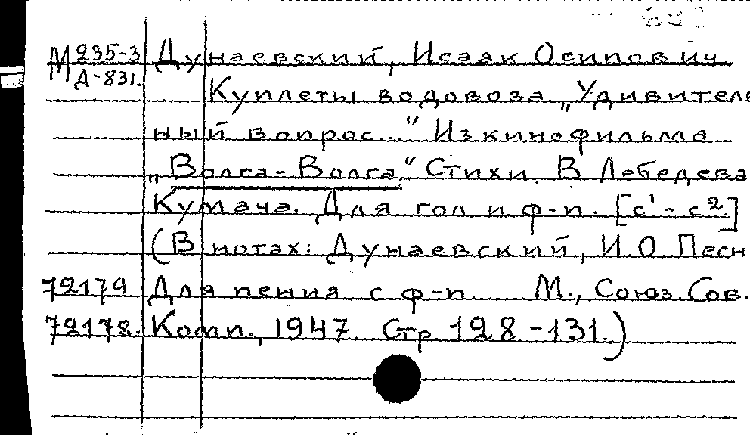 М 235-3 Дунаевский, Исаак Осипович
Д-831. Куплеты водовоза „Удивитель
ный вопрос..." Из кинофильма
„Волга-Волга." Стихи. В Лебедева
Кумача. Для гол и ф-п. [с¹-с²]
(В нотах: Дунаевский, И.О Песн
72179 Для пения с ф-п М., Союз Сов.
72178. Комп., 1947. Стр 128-131.)